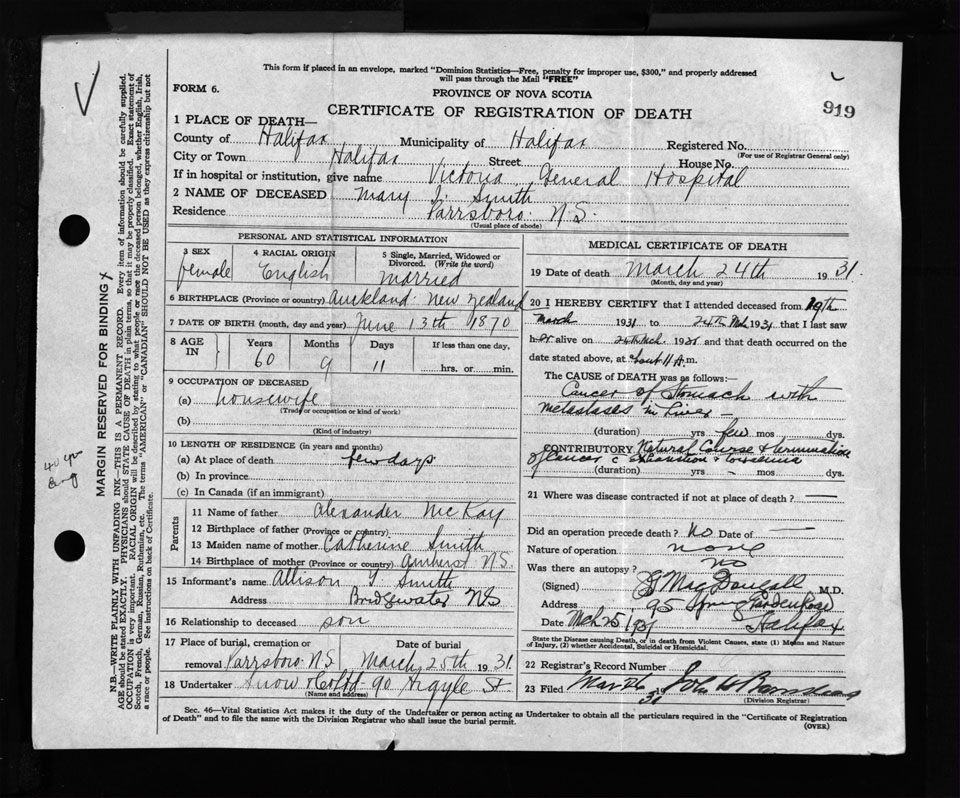 This form if placed in an envelope, marked "Dominion Statistics—Free, penalty for improper use, $300," and properly addressed
will pass through the Mail "FREE"
FORM 6.
PROVINCE OF NOVA SCOTIA
919
CERTIFICATE OF REGISTRATION OF DEATH
1 PLACE OF DEATH—
County of Halifax Municipality of Halifax Registered No.
(For use of Registrar General only)
City or Town Halifax Street House No.
If in hospital or institution, give name Victoria General Hospital
2 NAME OF DECEASED Mary J. Smith
Residence Parrsboro. N.S.
(Usual place of abode)
PERSONAL AND STATISTICAL INFORMATION
3 SEX 4 RACIAL ORIGIN 5 Single, Married, Widowed or Divorced. (Write the word)
female English married
6 BIRTHPLACE (Province or country) Auckland. New Zealand
7 DATE OF BIRTH (month, day and year) June 13th 1870
8 AGE IN Years Months Days If less than one day,
60 9 11 hrs. or min.
9 OCCUPATION OF DECEASED
(a) housewife
(Trade or occupation or kind of work)
(b)
(Kind of industry)
10 LENGTH OF RESIDENCE (in years and months)
(a) At place of death few days
(b) In province
(c) In Canada (if an immigrant)
Parents
11 Name of father Alexander McKay
12 Birthplace of father (Province or country)
13 Maiden name of mother Catherine Smith
14 Birthplace of mother (Province or country) Amherst N.S.
15 Informant's name Allison Smith
Address Bridgewater NS
16 Relationship to deceased son
17 Place of burial, cremation or
removal Parrsboro N.S March 25th 1931.
18 Undertaker Snow & Co Ltd - 90 Argyle St.
(Name and address)
MEDICAL CERTIFICATE OF DEATH
19 Date of death March 24th 1931.
(Month, day and year)
20 I HEREBY CERTIFY that I attended deceased from 19th
March 1931 to 24th Mch 1931 that I last saw
her alive on 24 Mch. 1931 and that death occurred on the
date stated above, at about 11 A.m.
The CAUSE OF DEATH was as follows:
Cancer of Stomach with
metastases in Liver —
(duration) yrs few mos dys.
CONTRIBUTORY Natural Course & termination
of cancer c exhaustion & toxaemia
(duration) yrs. - mos. dys.
21 Where was disease contracted if not at place of death? —
Did an operation precede death? No Date of —
Nature of operation none
Was there an autopsy? No
(Signed) MacDougall M.D.
Address 95 Spring Garden Road
Date Mch 25, 1931 Halifax
State the Disease causing Death, or in death from Violent Causes, state (1) Means and Nature
of Injury, (2) whether Accidental, Suicidal or Homicidal.
22 Registrar's Record Number
23 Filed Mar 26 31 John
(Division Registrar)
Sec. 46—Vital Statistics Act makes it the duty of the Undertaker or person acting as Undertaker to obtain all the particulars required in the "Certificate of Registration
of Death" and to file the same with the Division Registrar who shall issue the burial permit.
(OVER)
MARGIN RESERVED FOR BINDING
N.B.—WRITE PLAINLY WITH UNFADING INK—THIS IS A PERMANENT RECORD. Every item of information should be carefully supplied.
AGE should be stated EXACTLY. PHYSICIANS should STATE CAUSE OF DEATH in plain terms, so that it may be properly classified. Exact statement of
OCCUPATION is very important. RACIAL ORIGIN will be described by stating to what people or race the deceased person belonged, whether English, Irish,
Scotch, French, German, Russian, Ruthenian, etc. The terms "AMERICAN" or "CANADIAN" SHOULD NOT BE USED as they express citizenship but not
a race or people. See instructions on back of Certificate.
40 yrs